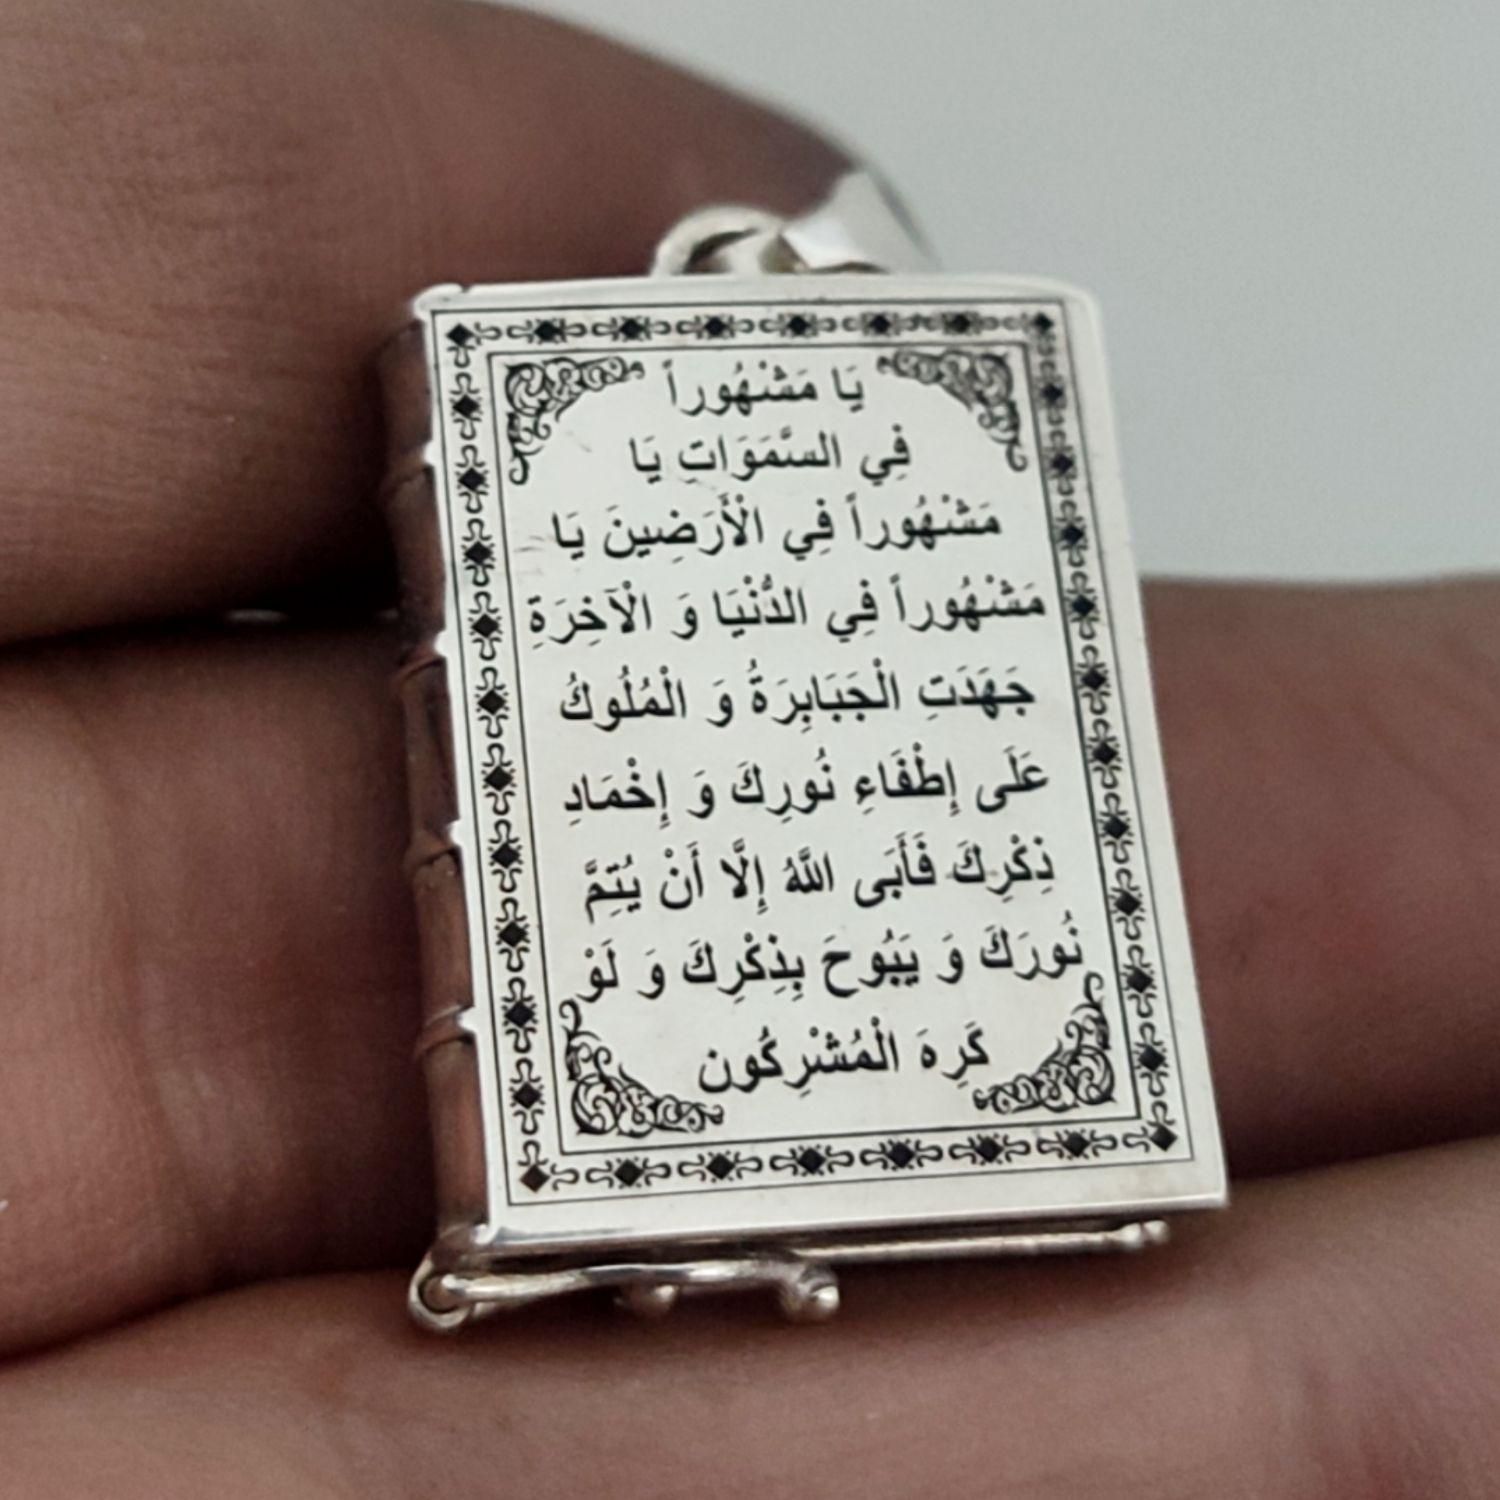 يَا مَشْهُوراً
فِي السَّمَوَاتِ يَا
مَشْهُوراً فِي الْأَرَضِينَ يَا
مَشْهُوراً فِي الدُّنْيَا وَ الْآخِرَةِ
جَهَدَتِ الْجَبَابِرَةُ وَ الْمُلُوكُ
عَلَى إِطْفَاءِ نُورِكَ وَ إِخْمَادِ
ذِكْرِكَ فَأَبَى اللَّهُ إِلَّا أَنْ يُتِمَّ
نُورَكَ وَ يَبُوحَ بِذِكْرِكَ وَ لَوْ
كَرِهَ الْمُشْرِكُون